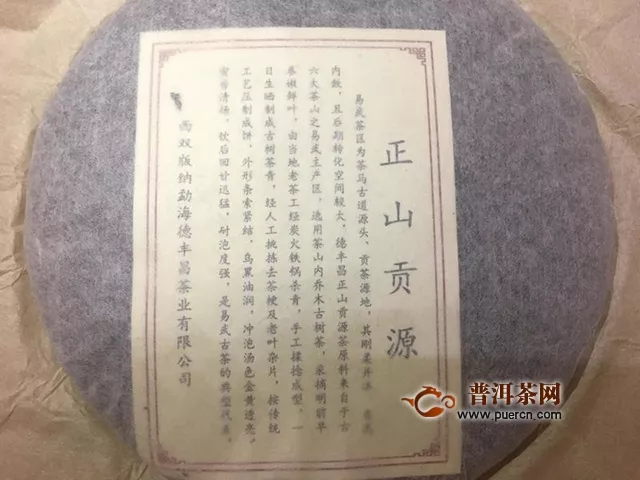 正山贡源
易武茶区为茶马古道源头、贡茶源地，其刚柔并济
内敛，且后期转化空间较大，德丰昌正山贡源茶原料来自于古
六大茶山之易武主产区，选用茶山内乔木古树茶，采摘明前早
春嫩鲜叶。由当地老茶工经炭火铁锅杀青，手工揉捻成型，一
日生晒制成古树茶青，经人工挑拣去茶梗及老叶杂片，按传统
工艺压制成饼，外形条索紧结，乌黑油润，冲泡汤色金黄透亮。
蜜香清扬，饮后回甘迅猛，耐泡度强，是易武古茶的典型代表。
西双版纳勐海德丰昌茶业有限公司
普洱茶网
www.puercn.com